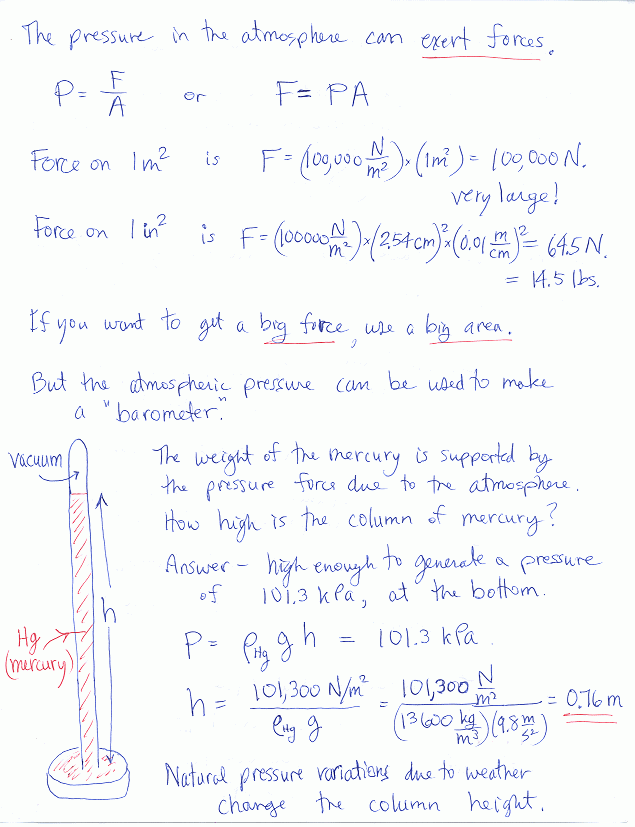 The pressure in the atmosphere can exert forces.
P = F/A or F = PA
Force on 1 m² is F = (100,000 N/m²) × (1 m²) = 100,000 N.
very large!
Force on 1 in² is F = (100000 N/m²) × (2.54 cm)² × (0.01 m/cm)² = 64.5 N.
= 14.5 lbs.
If you want to get a big force, use a big area.
But the atmospheric pressure can be used to make
a "barometer."
vacuum
The weight of the mercury is supported by
the pressure force due to the atmosphere.
How high is the column of mercury?
Answer – high enough to generate a pressure
of 101.3 kPa, at the bottom.
h
Hg
(mercury)
P = ρHg g h = 101.3 kPa.
h = 101,300 N/m² / ρHg g = 101,300 N/m² / (13600 kg/m³)(9.8 m/s²) = 0.76 m
Natural pressure variations due to weather
change the column height.